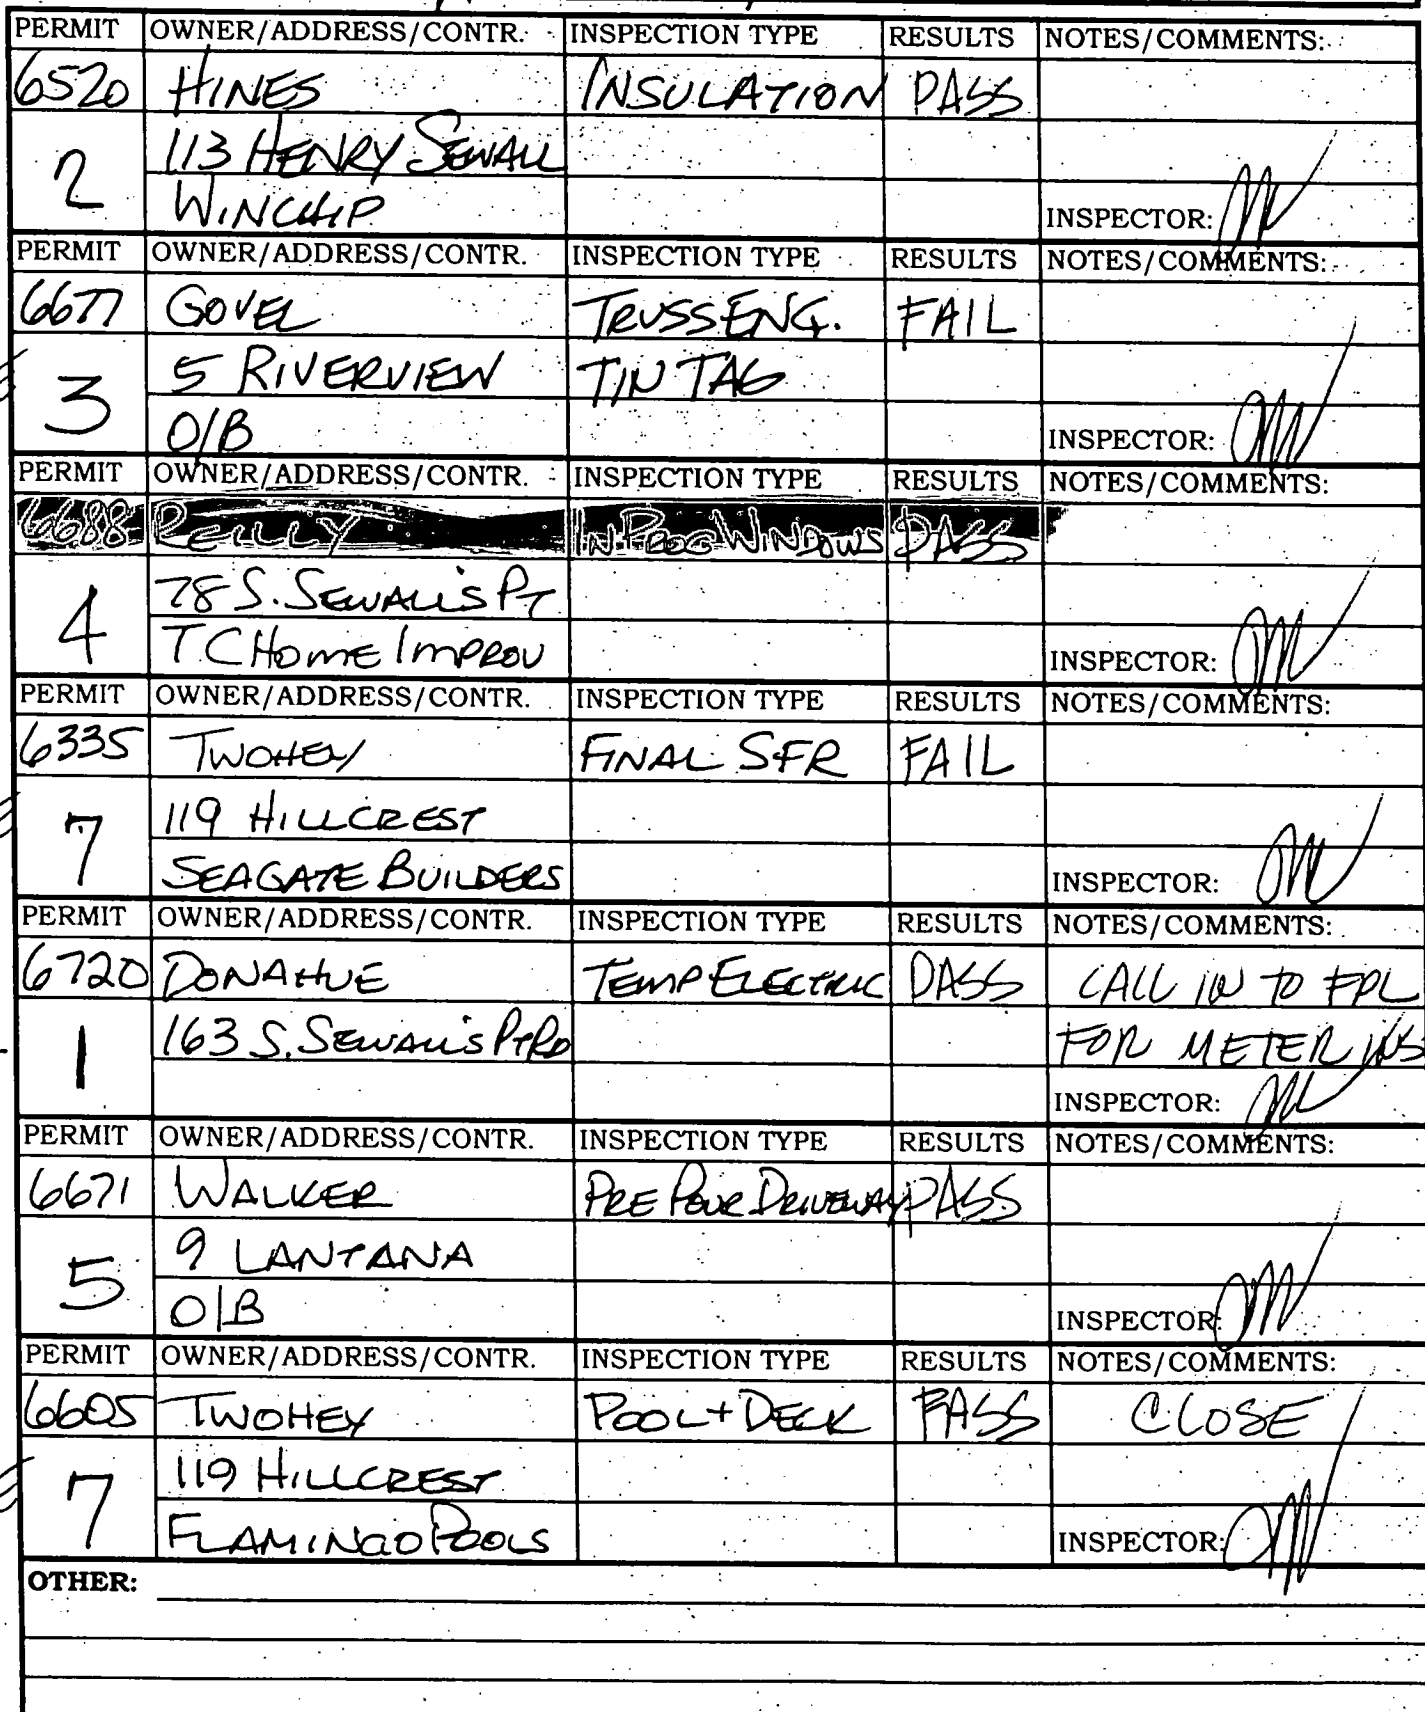 PERMIT OWNER/ADDRESS/CONTR. INSPECTION TYPE RESULTS NOTES/COMMENTS:
6520 HINES INSULATION PASS
2 113 HENRY SEWALL
WINCHIP INSPECTOR:
PERMIT OWNER/ADDRESS/CONTR. INSPECTION TYPE RESULTS NOTES/COMMENTS:
6677 GOVEL TRUSS ENG. FAIL
3 5 RIVERVIEW TIN TAG
O/B INSPECTOR:
PERMIT OWNER/ADDRESS/CONTR. INSPECTION TYPE RESULTS NOTES/COMMENTS:
6688 REILLY IN PROG WINDOWS PASS
4 78 S. SEWALL'S PT
T C HOME IMPROV INSPECTOR:
PERMIT OWNER/ADDRESS/CONTR. INSPECTION TYPE RESULTS NOTES/COMMENTS:
6335 TWOHEY FINAL SFR FAIL
7 119 HILLCREST
SEAGATE BUILDERS INSPECTOR:
PERMIT OWNER/ADDRESS/CONTR. INSPECTION TYPE RESULTS NOTES/COMMENTS:
6720 DONAHUE TEMP ELECTRIC PASS CALL IN TO FPL
1 163 S. SEWALL'S PT RD FOR METER INS
INSPECTOR:
PERMIT OWNER/ADDRESS/CONTR. INSPECTION TYPE RESULTS NOTES/COMMENTS:
6671 WALKER PRE POUR DRIVEWAY PASS
5 9 LANTANA
O/B INSPECTOR:
PERMIT OWNER/ADDRESS/CONTR. INSPECTION TYPE RESULTS NOTES/COMMENTS:
6605 TWOHEY POOL + DECK PASS CLOSE
7 119 HILLCREST
FLAMINGO POOLS INSPECTOR:
OTHER: